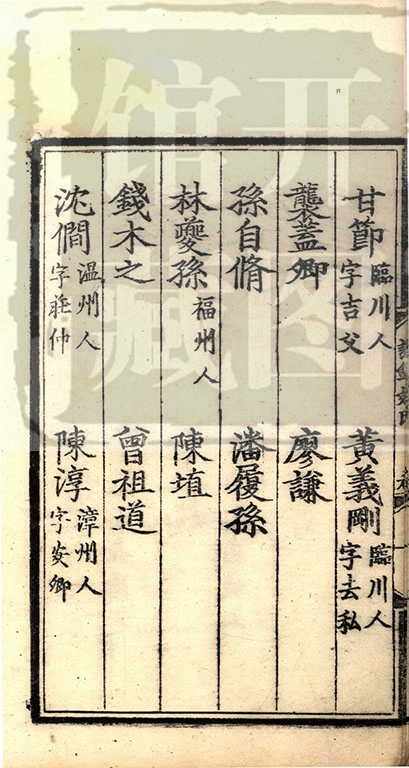 甘節 臨川人 字吉父 黃義剛 臨川人 字去私
襲蓋卿 廖謙
孫自脩 潘履孫
林夔孫 福州人 陳埴
錢木之 曾祖道
沈僩 温州人 字莊仲 陳淳 漳州人 字安卿
開圖
館藏